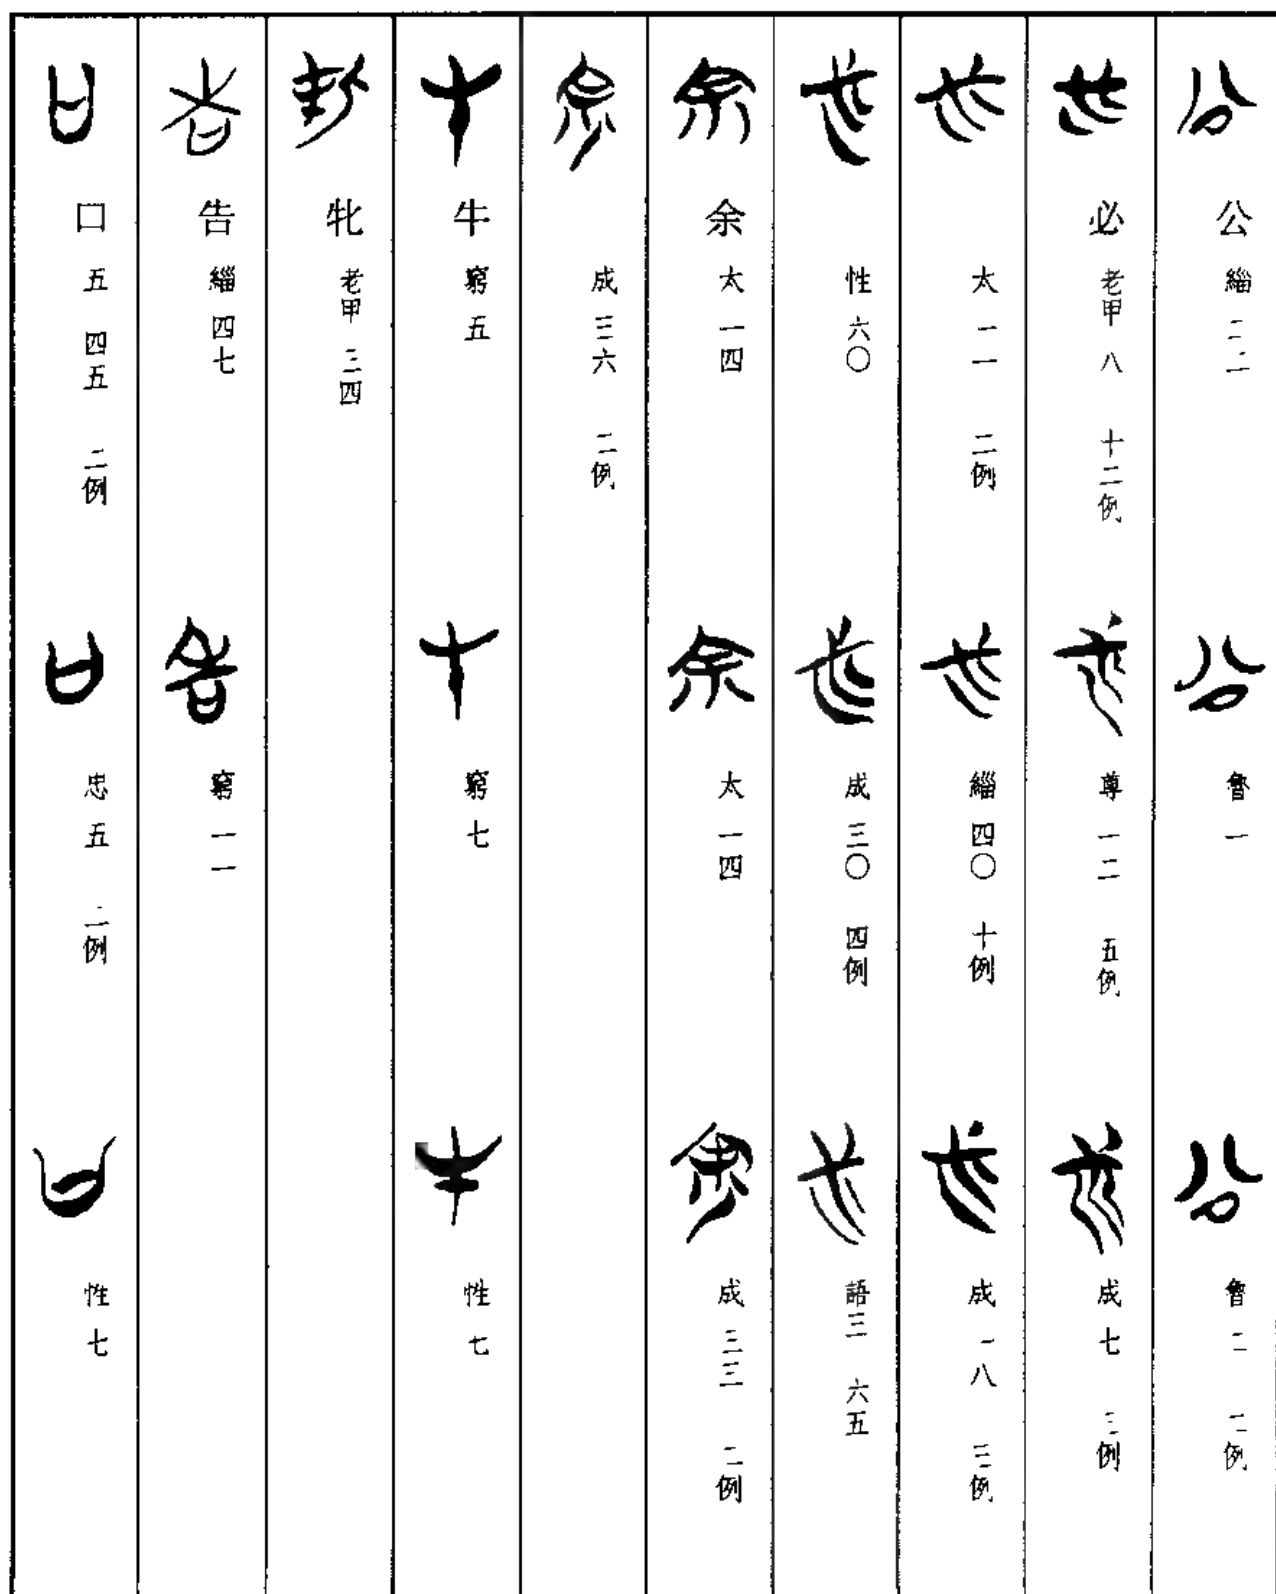 公 緇 二二 魯 一 魯 二 二例
必 老甲 八 十二例 尊 一二 五例 成 七 三例
太 一一 二例 緇 四〇 十例 成 一八 三例
性 六〇 成 三〇 四例 語三 六五
余 太 一四 太 一四 成 三三 二例
成 三六 二例
牛 窮 五 窮 七 性 七
牝 老甲 三四
告 緇 四七 窮 一一
口 五 四五 二例 忠 五 二例 性 七